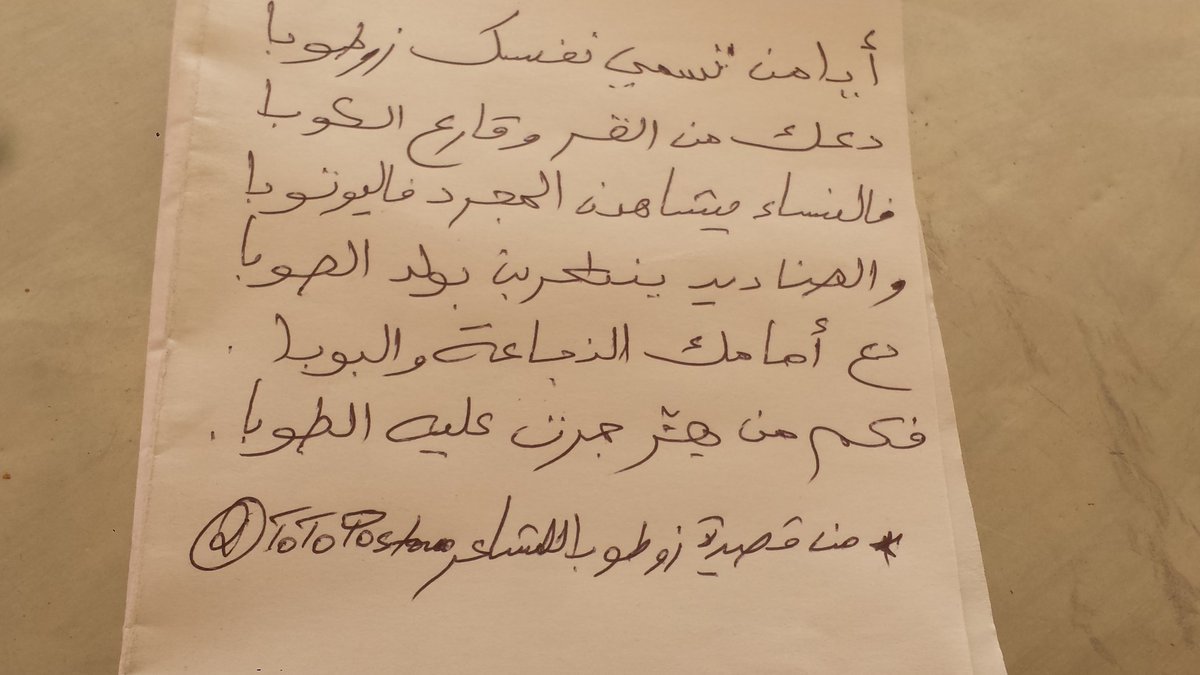 أيا من تسمي نفسك زوطوبا
دعك من القر وقارع الكوبا
فالنساء يشاهدن المجرد فاليوتوبا
والصناديد ينتحرن بولد الصوبا
دع أمامك الذجاعة والبوبا.
فكم من هيثر جرت عليه الطوبا.
* من قصيدة زوطوبا للشاعر ToTo @